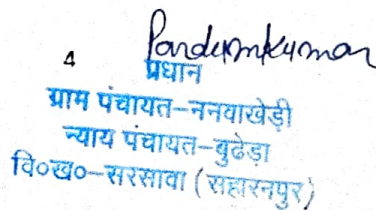 Pardumkumar
4
प्रधान
ग्राम पंचायत-ननवाखेड़ी
न्याय पंचायत-बुढेड़ा
वि०ख०-सरसावा (सहारनपुर)